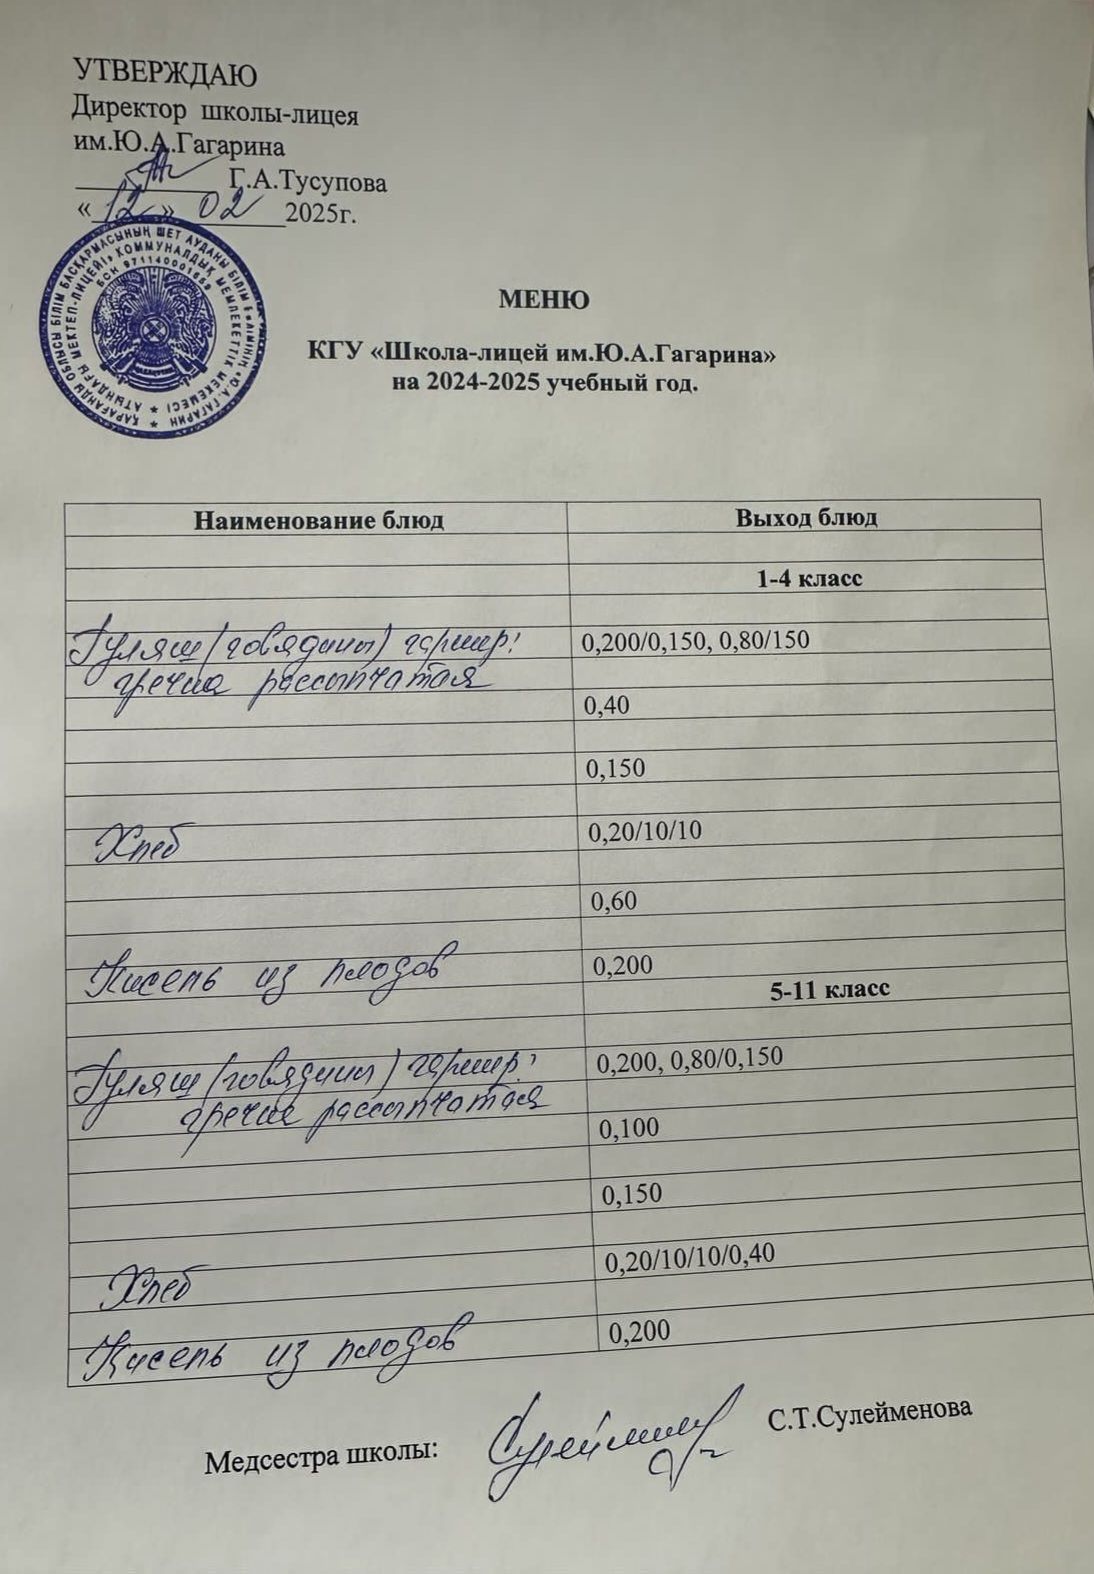 УТВЕРЖДАЮ
Директор школы-лицея
им.Ю.А.Гагарина
__________ Г.А.Тусупова
«12» 02 2025г.
ҚАРАҒАНДЫ ОБЛЫСЫ БІЛІМ БАСҚАРМАСЫНЫҢ ШЕТ АУДАНЫ БІЛІМ БӨЛІМІНІҢ «Ю.А.ГАГАРИН
АТЫНДАҒЫ МЕКТЕП-ЛИЦЕЙІ» КОММУНАЛДЫҚ МЕМЛЕКЕТТІК МЕКЕМЕСІ
БСН 971140001659
МЕНЮ
КГУ «Школа-лицей им.Ю.А.Гагарина»
на 2024-2025 учебный год.
Наименование блюд Выход блюд
1-4 класс
Гуляш (говядины) гарнир: 0,200/0,150, 0,80/150
гречка рассыпчатая
0,40
0,150
Хлеб 0,20/10/10
0,60
Кисель из плодов 0,200
5-11 класс
Гуляш (говядины) гарнир: 0,200, 0,80/0,150
гречка рассыпчатая
0,100
0,150
Хлеб 0,20/10/10/0,40
Кисель из плодов 0,200
Медсестра школы: Сулейменова С.Т.Сулейменова